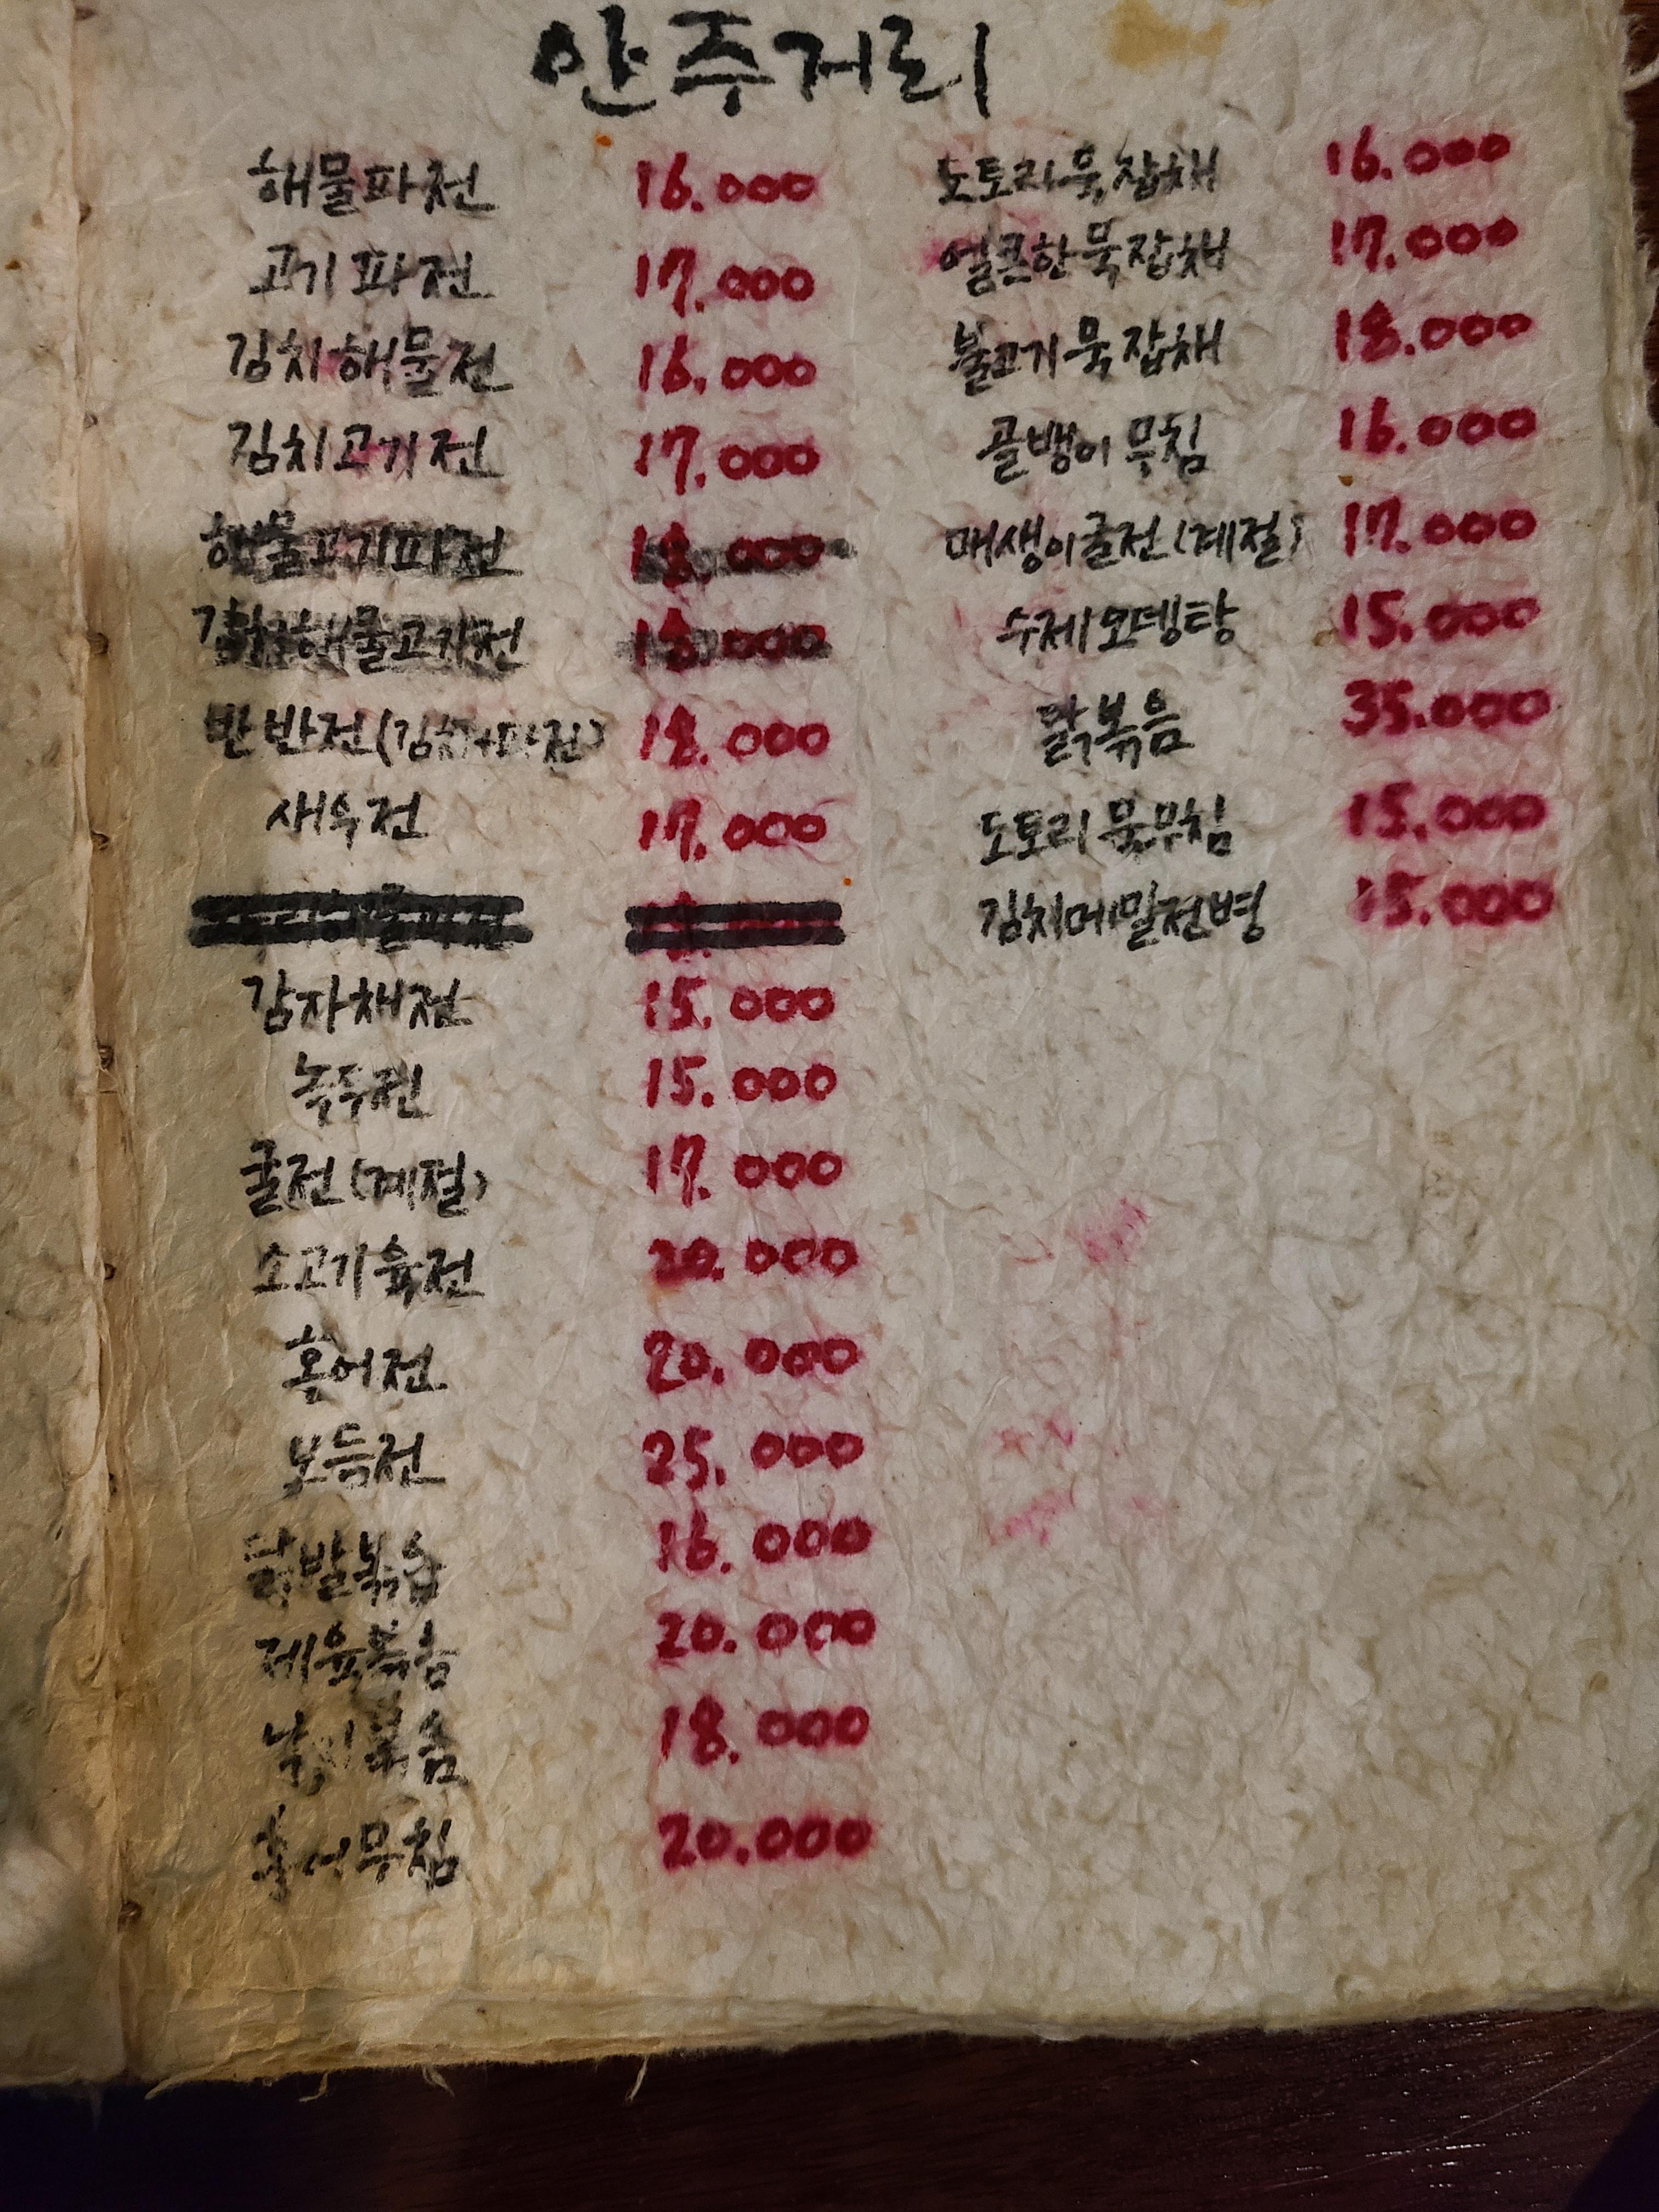 안주거리
해물파전 16.000
고기파전 17.000
김치해물전 16.000
김치고기전 17.000
해물고기파전 18.000
김치해물고기전 18.000
반반전(김치+파전) 18.000
새우전 17.000
해물파전
감자채전 15.000
녹두전 15.000
굴전(계절) 17.000
소고기육전 20.000
홍어전 20.000
모듬전 25.000
닭발볶음 16.000
제육볶음 20.000
낙지볶음 18.000
홍어무침 20.000
도토리묵잡채 16.000
얼큰한묵잡채 17.000
불고기묵잡채 18.000
골뱅이무침 16.000
매생이굴전(계절) 17.000
수제오뎅탕 15.000
닭볶음 35.000
도토리묵무침 15.000
김치메밀전병 15.000